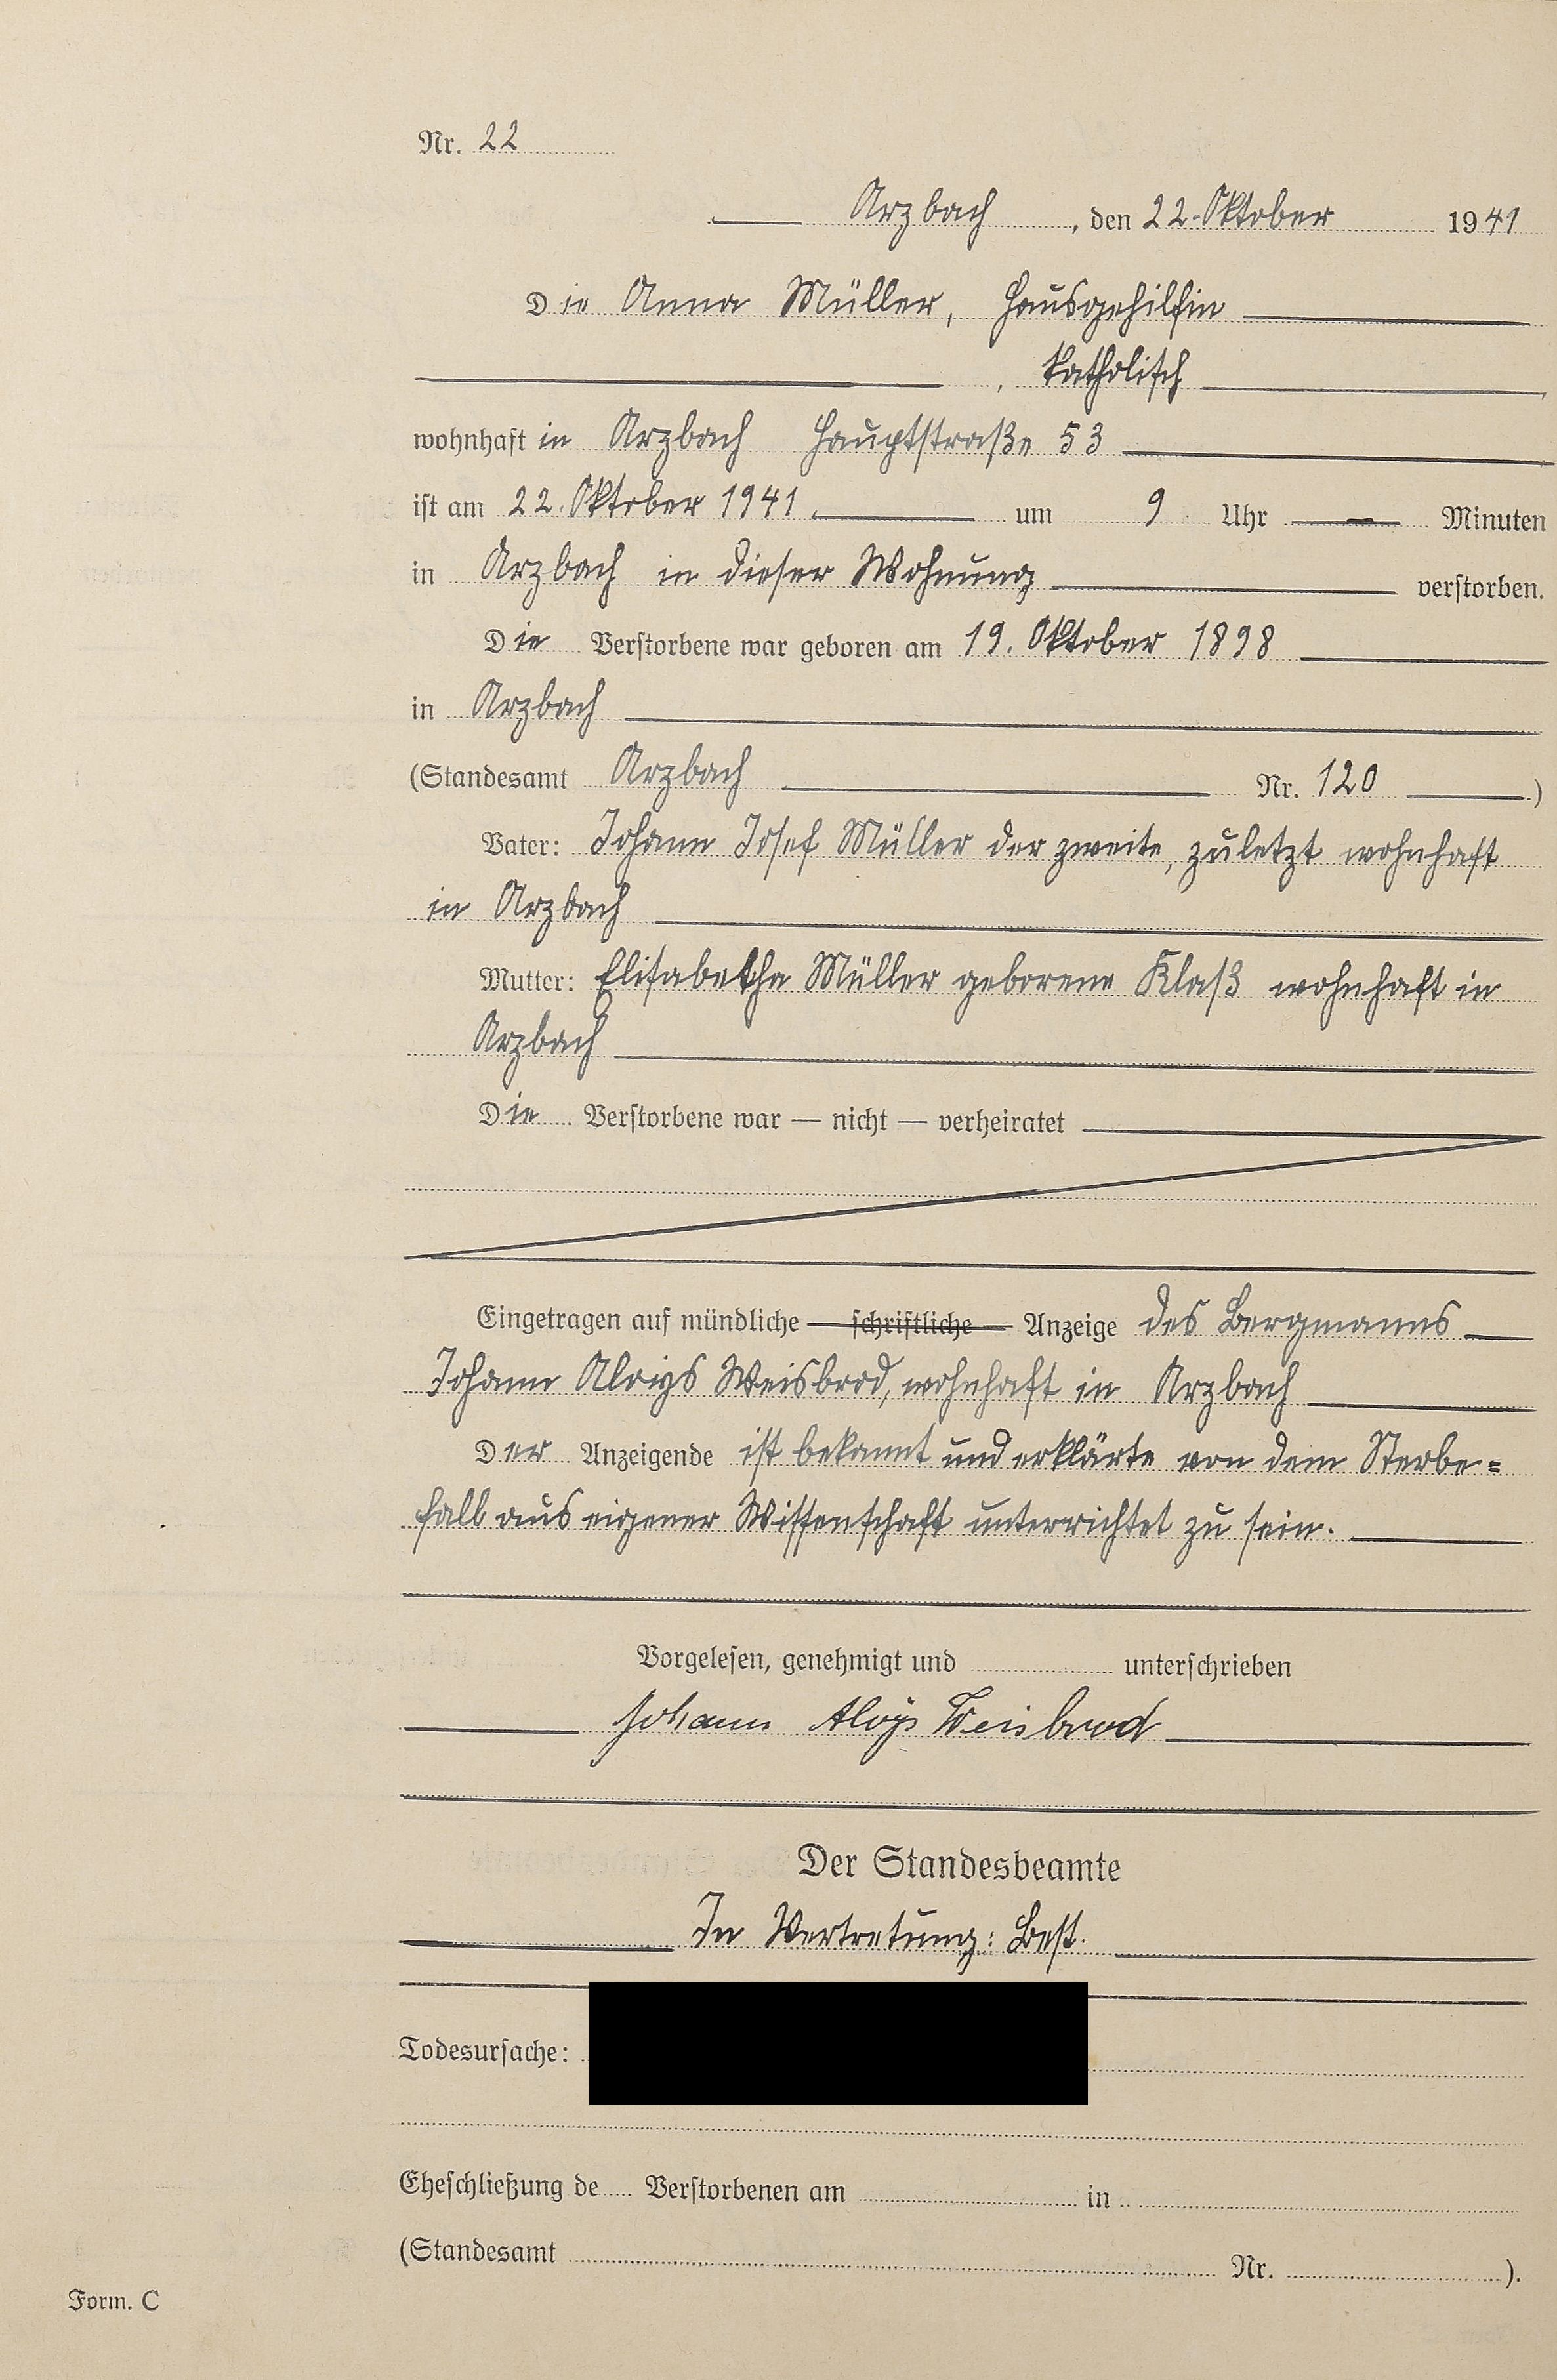 Nr. 22
Arzbach, den 22. Oktober 1941
Die Anna Müller, Hausgehilfin
, katholisch
wohnhaft in Arzbach Hauptstraße 53
ist am 22. Oktober 1941 um 9 Uhr — Minuten
in Arzbach in dieser Wohnung verstorben.
Die Verstorbene war geboren am 19. Oktober 1898
in Arzbach
(Standesamt Arzbach Nr. 120 )
Vater: Johann Josef Müller der zweite, zuletzt wohnhaft
in Arzbach
Mutter: Elisabetha Müller geborene Klaß wohnhaft in
Arzbach
Die Verstorbene war — nicht — verheiratet
Eingetragen auf mündliche — schriftliche — Anzeige des Bergmanns
Johann Aloys Weisbrod, wohnhaft in Arzbach
Der Anzeigende ist bekannt und erklärte von dem Sterbe=
fall aus eigener Wissenschaft unterrichtet zu sein.
Vorgelesen, genehmigt und unterschrieben
Johann Aloys Weisbrod
Der Standesbeamte
In Vertretung: Best.
Todesursache:
Eheschließung de Verstorbenen am in
(Standesamt Nr. ).
Form. C